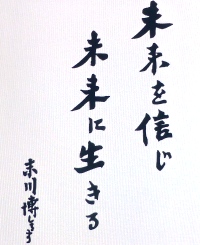 未来を信じ
未来に生きる
末川博